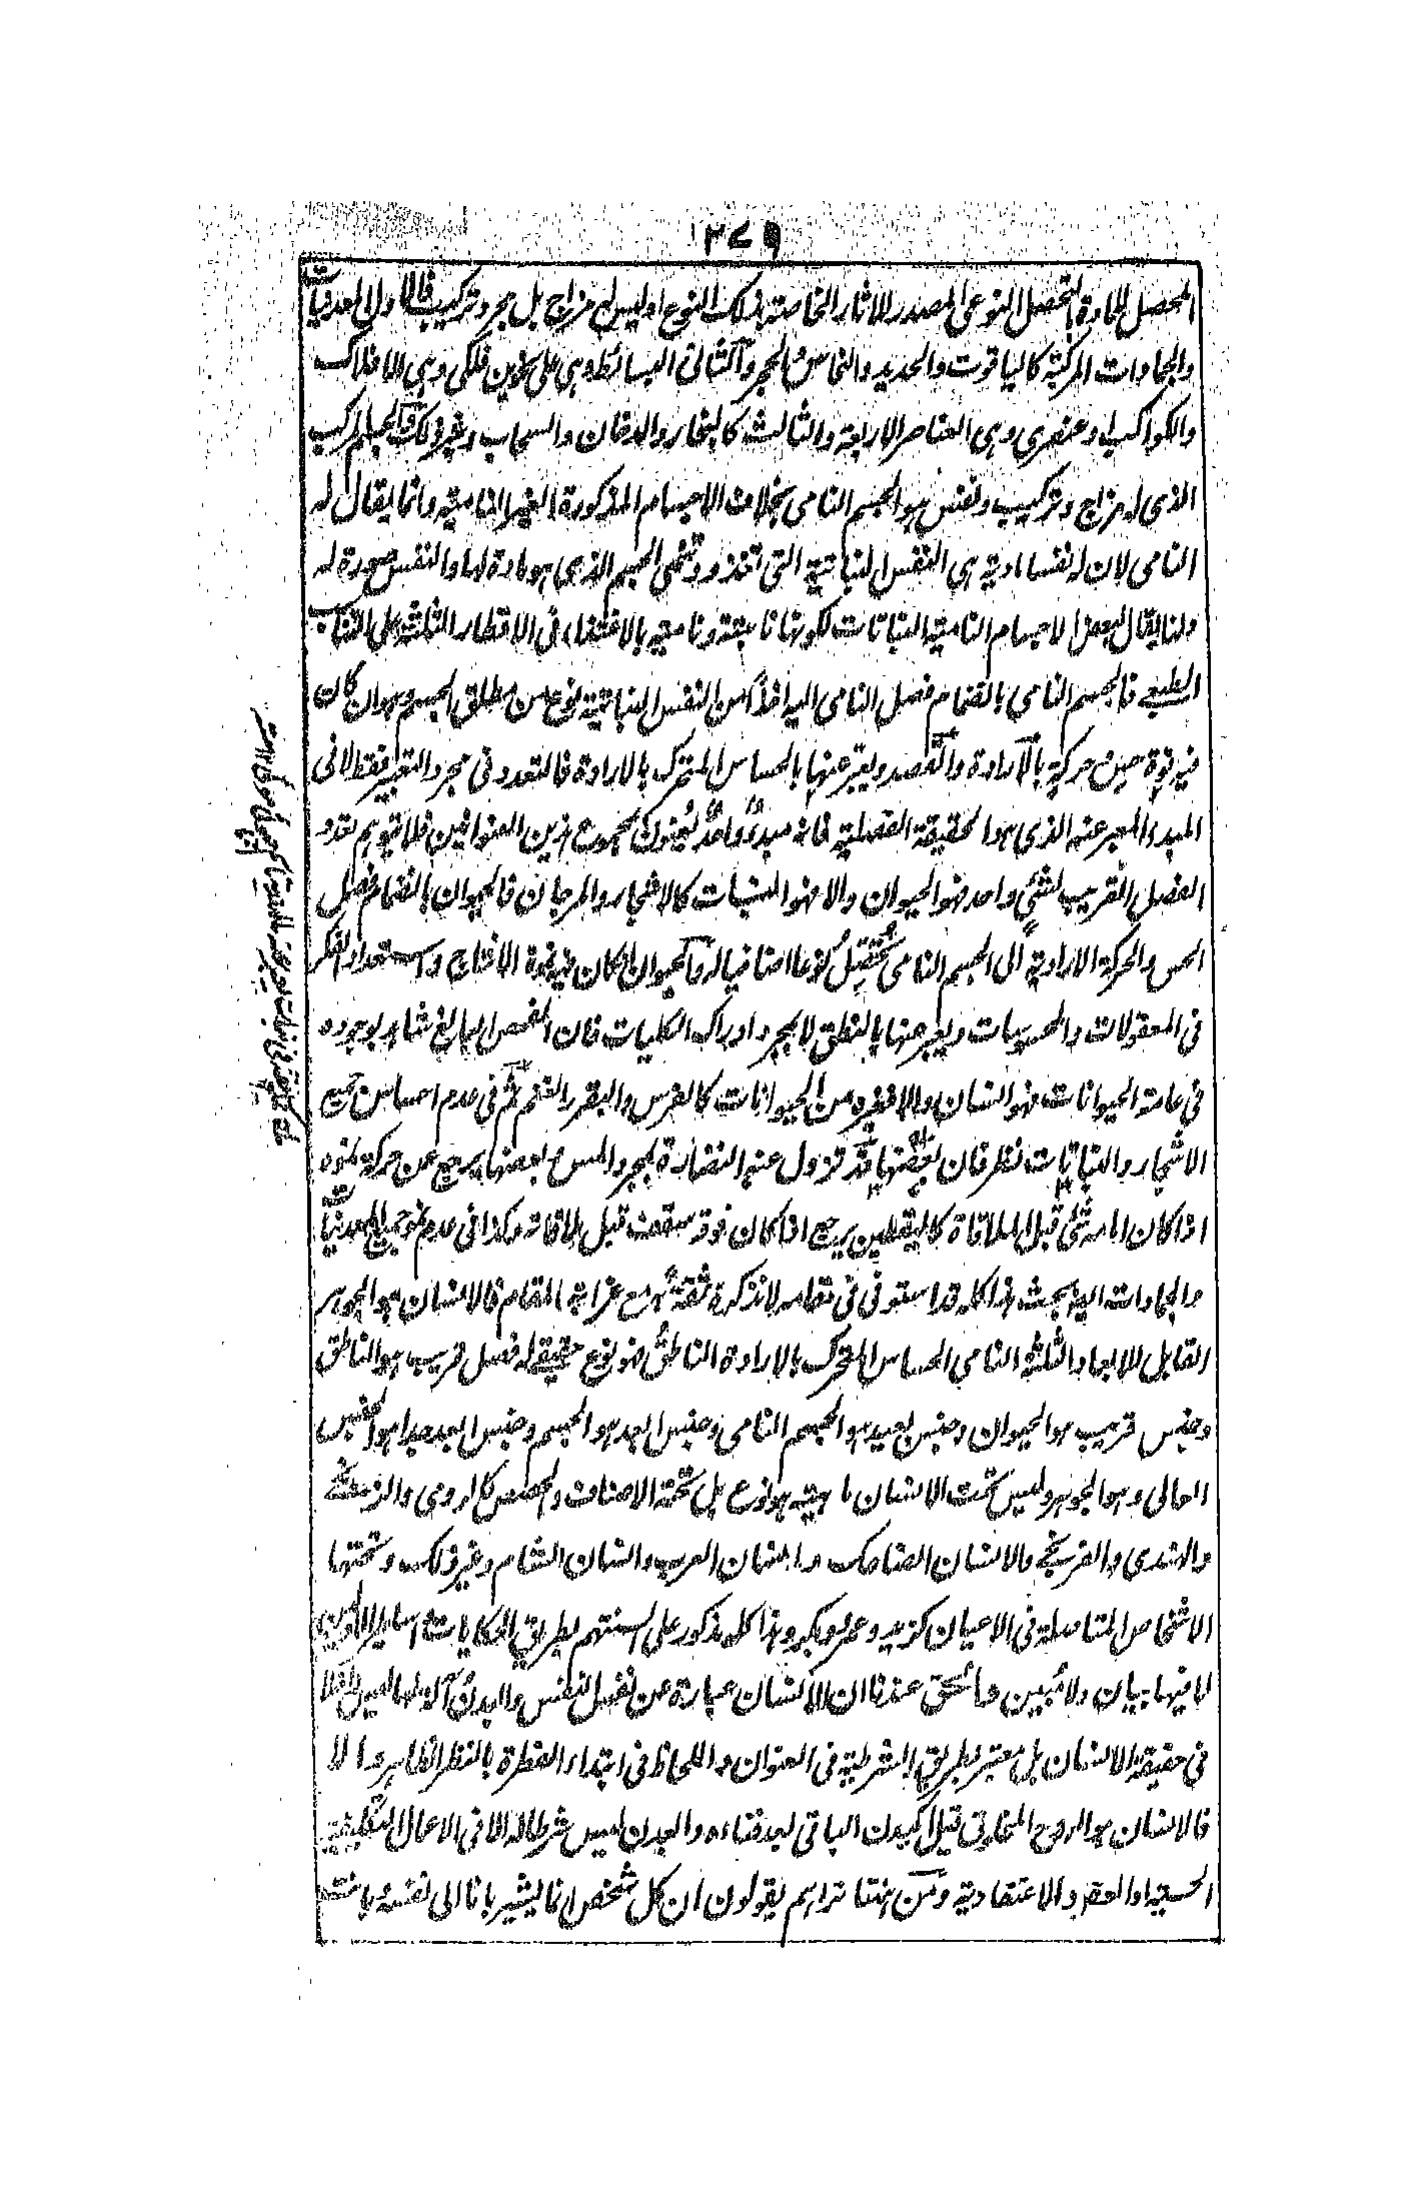 ٣٧٩
المحصل للمادة التحصل النوعى المصدر للاثار الخاصة بذلك النوع اوليس له مزاج بل مجرد تركيب فالاول المعدنيات
والجمادات المركبة كالياقوت والحديد والنحاس والحجر والثانى البسائط وهى على نحوين فلكى وهى الافلاك
والكواكب او عنصرى وهى العناصر الاربعة والثالث كالبخار والدخان والسحاب وغير ذلك فالجسم المركب
الذى له مزاج وتركيب ونفس هو الجسم النامى بخلاف الاجسام المذكورة الغير النامية وانما يقال له
النامى لان له نفسا مادية هى النفس النباتية التى تغذو وتنمى الجسم الذى هو مادة لها والنفس صورة له
ولذا يقال لبعض الاجسام النامية النباتات لكونها نابتة ونامية بالاغتذاء فى الاقطار الثلثة على التناسب
الطبعى فالجسم النامى بانضمام فصل النامى اليه اخذا من النفس النباتية نوع من مطلق الجسم وهو ان كان
فيه قوة حس وحركة بالارادة والقصد ويعبر عنها بالحساس المتحرك بالارادة فالتعدد فى مجرد التعبير فقط لا فى
المبدء المعبر عنه الذى هو الحقيقة الفصلية فانه مبدء واحد يعنون بمجموع هذين العنوانين فلا يتوهم تعدد
الفصل القريب لشئ واحد فهو الحيوان والا فهو النبات كالاشجار والمرجان فالحيوان بانضمام فصل
الحس والحركة الارادية الى الجسم النامى تحصل نوعا اضافيا له فالحيوان ان كان فيه قوة الانتاج واستعداد الفكر
فى المعقولات والمحسوسات ويعبر عنها بالنطق لا بمجرد ادراك الكليات فان الفحص البالغ شاهد بوجوده
فى عامة الحيوانات فهو انسان والا فغيره من الحيوانات كالفرس والبقر والغنم ثم فى عدم احساس جميع
الاشجار والنباتات نظر فان بعضها قد تزول عنه النضارة بمجرد المس وبعضها يرجع عن حركة نموه
اذا كان امامه شئ قبل الملاقاة كاليقطين يرجع اذا كان فوقه سقف قبل ملاقاته وكذا فى عدم نمو جميع المعدنيات
والجمادات ايضا بحث هذا كله قد استوفى فى مقامه لا نذكره ثقة مع غرابة المقام فالانسان هو الجوهر
القابل للابعاد الثلثة النامى الحساس المتحرك بالارادة الناطق فهو نوع حقيقى له فصل قريب هو الناطق
وجنس قريب هو الحيوان وجنس بعيد هو الجسم النامى وجنس ابعد هو الجسم وجنس ابعد جدا هو الجنس
العالى وهو الجوهر وليس تحت الانسان ماهية هو نوع بل تحته الاصناف والحصص كالرومى والزنجى
والهندى والفرنجى والانسان الضاحك وانسان العرب وانسان الشام وغير ذلك وتحتها
الاشخاص المتاصلة فى الاعيان كزيد وعمرو وبكر وهذا كله مذكور على السنتهم بطريق الحكايات واساطير الاولين
لا فيها بيان ولا تبيين والحق عندنا ان الانسان عبارة عن نفس النفس والبدن آلة لها ليس داخلا
فى حقيقة الانسان بل معتبر بطريق الشرطية فى العنوان واللحاظ فى ابتداء الفطرة بالنظر الظاهر والا
فالانسان هو الروح المفارق قبل البدن الباقى بعد فناءه والبدن ليس شرطا له الا فى الاعمال التكليفية
الحسية او العقلية والاعتقادية ومن ههنا تراهم يقولون ان كل شخص انما يشير بانا الى نفسه بانت